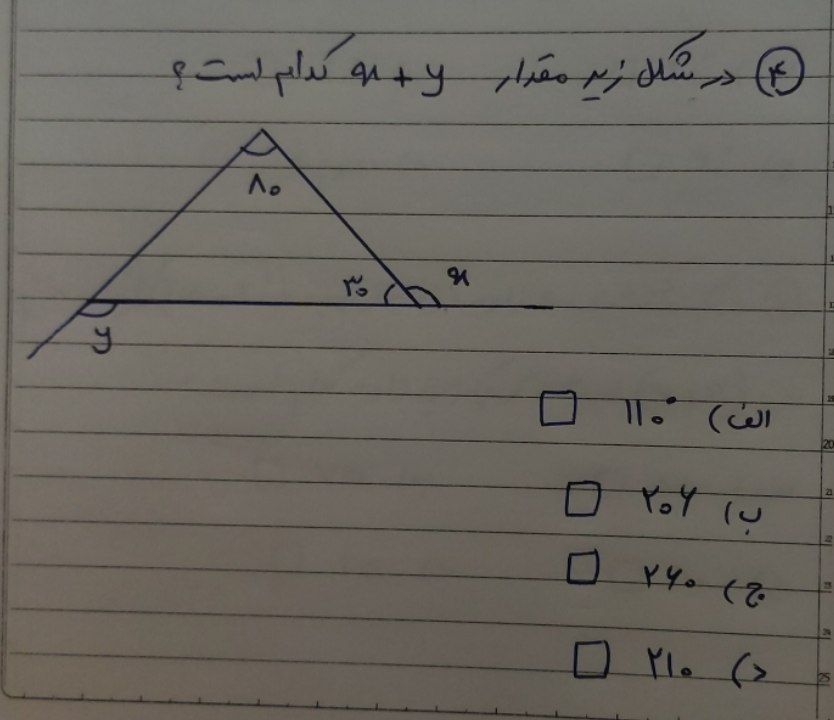 ۴ در شکل زیر مقدار x + y کدام است؟
۸۰
۳۰ x
y
الف) ۱۱۰°
ب) ۲۰۶
ج) ۲۶۰
د) ۲۱۰